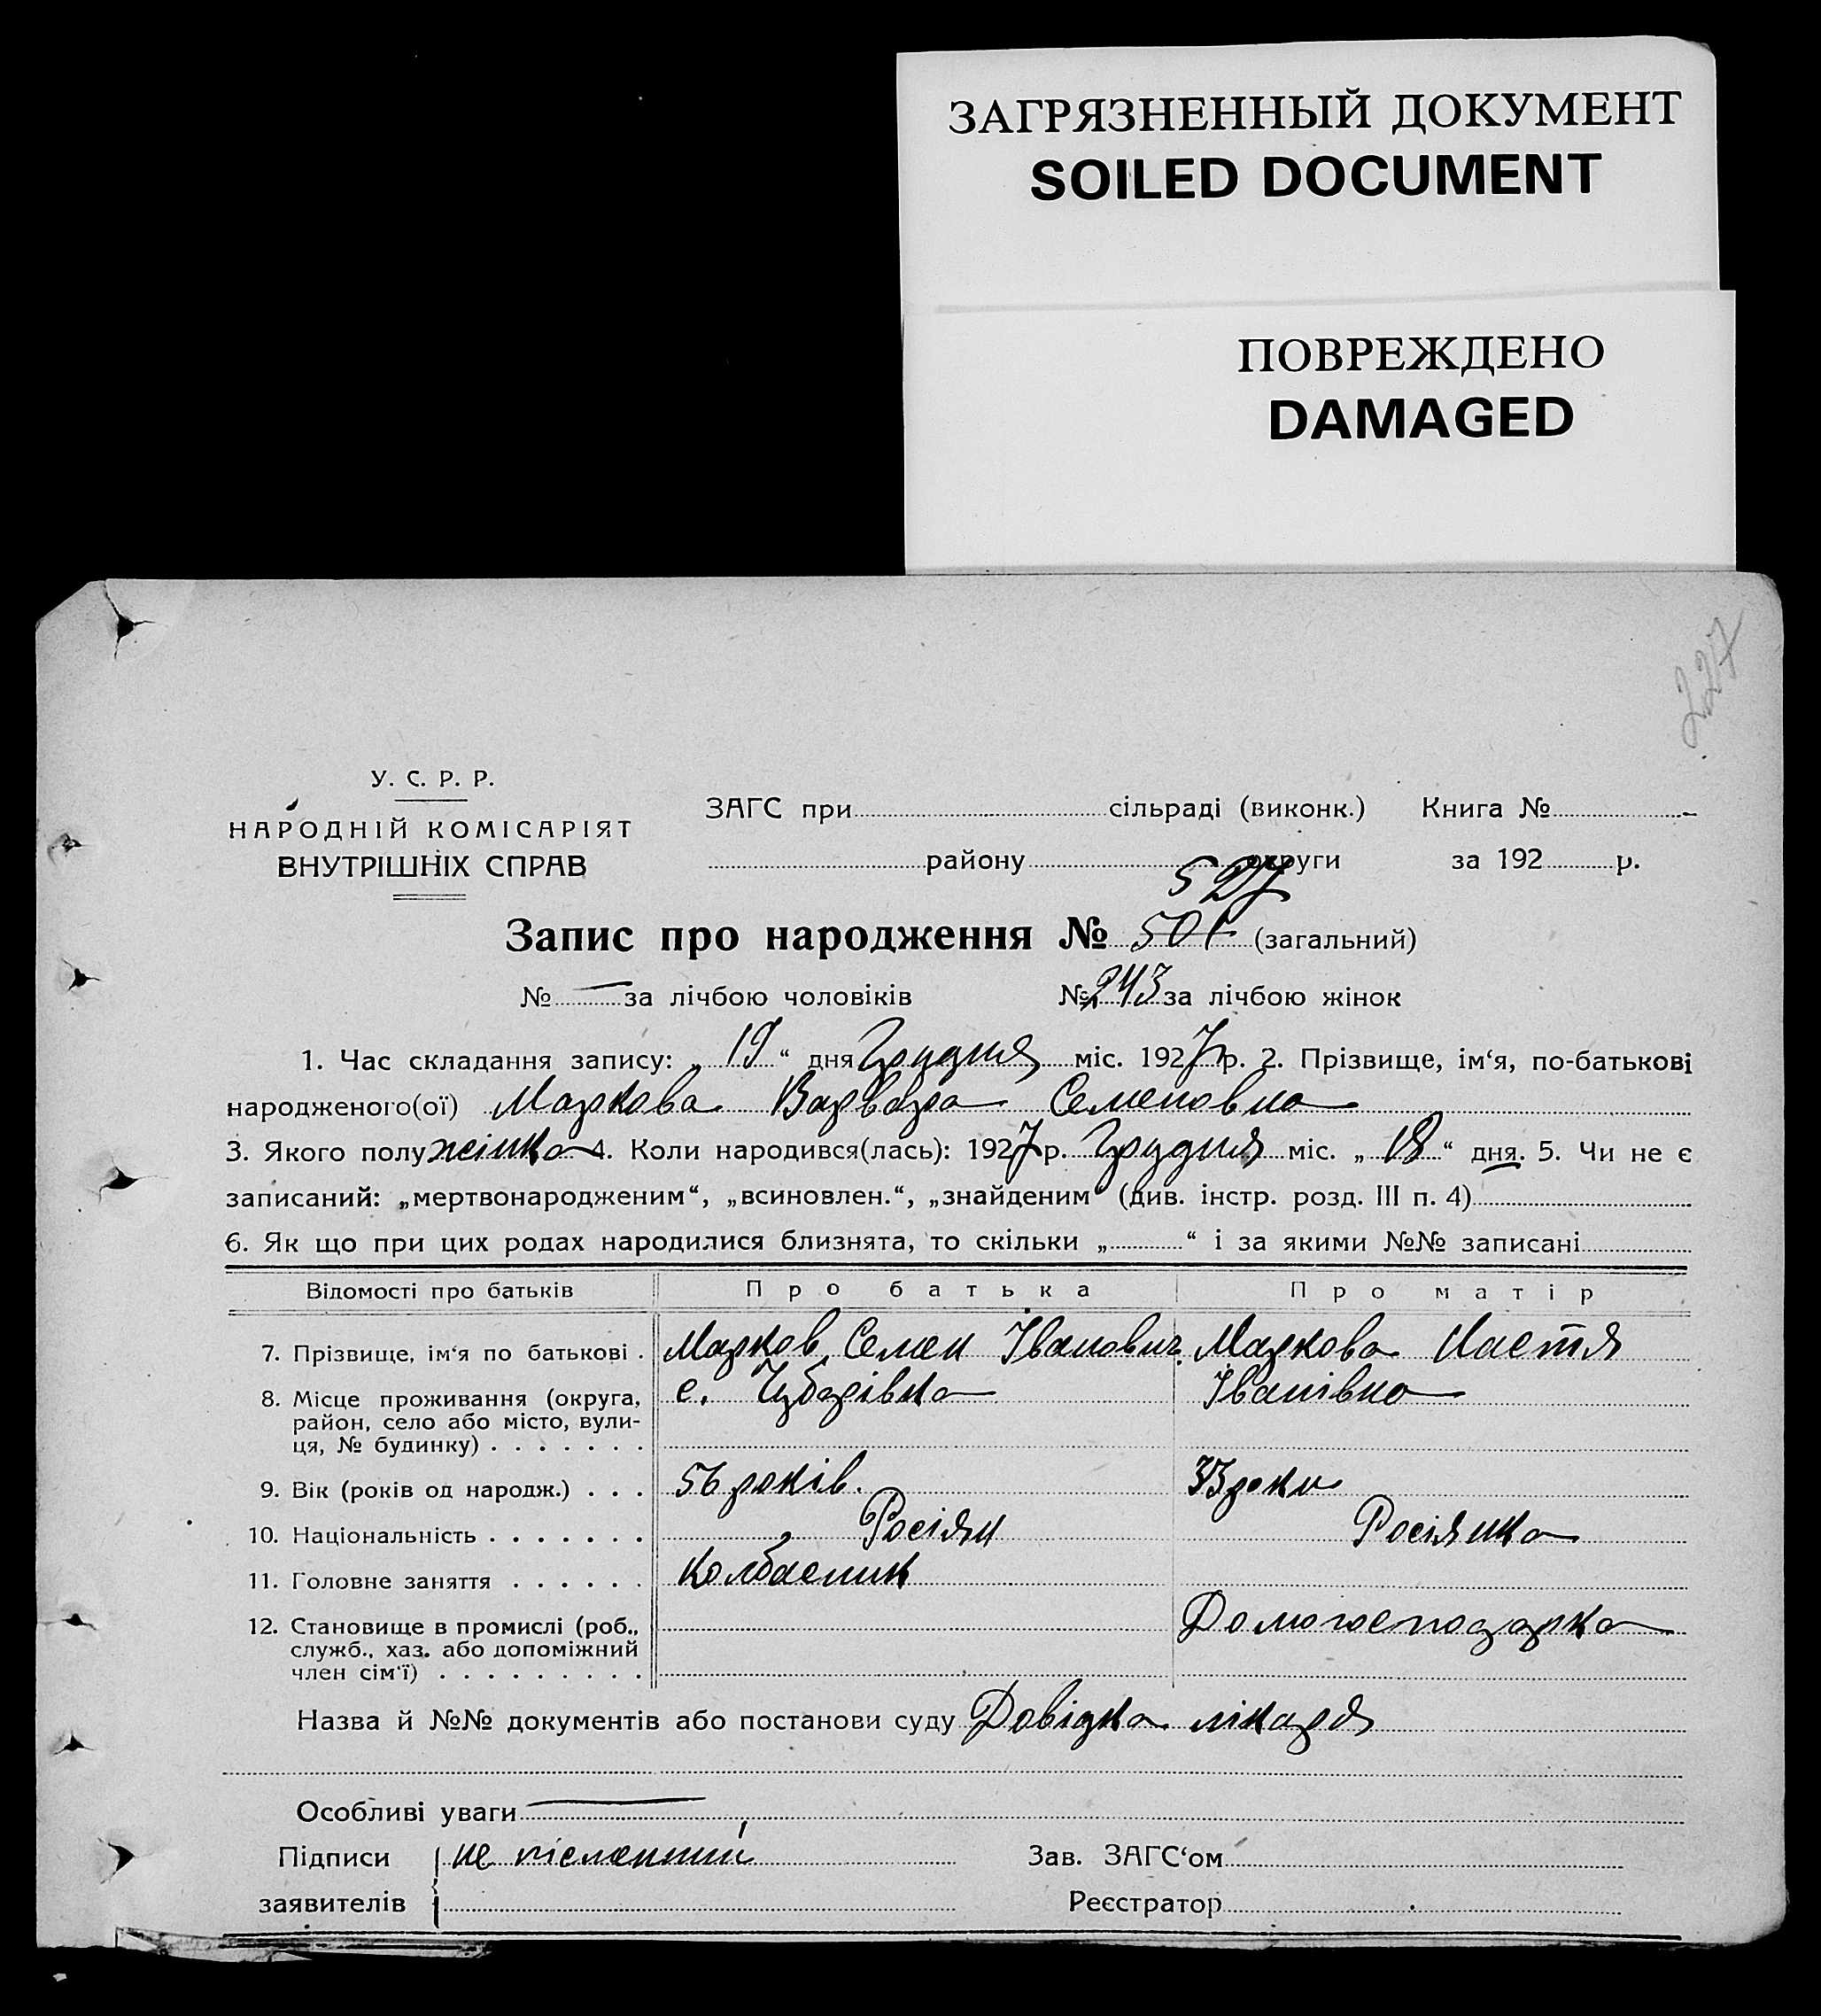 ЗАГРЯЗНЕННЫЙ ДОКУМЕНТ
SOILED DOCUMENT
ПОВРЕЖДЕНО
DAMAGED
227
У. С. Р. Р.
НАРОДНІЙ КОМІСАРІЯТ
ВНУТРІШНІХ СПРАВ
ЗАГС при сільраді (виконк.) Книга №
району округи за 192 р.
527
Запис про народження № 501 (загальний)
№ — за лічбою чоловіків № 243 за лічбою жінок
1. Час складання запису: „19“ дня Грудня міс. 1927 р. 2. Прізвище, ім‘я, по-батькові
народженого(ої) Маркова Варвара Семеновна
3. Якого полу жінка 4. Коли народився(лась): 1927 р. Грудня міс. „18“ дня. 5. Чи не є
записаний: „мертвонародженим“, „всиновлен.“, „знайденим“ (див. інстр. розд. III п. 4)
6. Як що при цих родах народилися близнята, то скільки „ “ і за якими №№ записані
Відомості про батьків Про батька Про матір
7. Прізвище, ім‘я по батькові . Марков Семен Іванович. Маркова Настя
8. Місце проживання (округа, с. Чубарівка Іванівна
район, село або місто, вули-
ця, № будинку) . . . . . . .
9. Вік (років од народж.) . . . 56 років. 33 роки
10. Національність . . . . . . . Росіян Росіянка
11. Головне заняття . . . . . . Колбасник
12. Становище в промислі (роб., Домогосподарка
служб., хаз. або допоміжний
член сім‘ї) . . . . . . . . .
Назва й №№ документів або постанови суду Довідка лікаря
Особливі уваги —
Підписи не писменний Зав. ЗАГС‘ом
заявителів Реєстратор